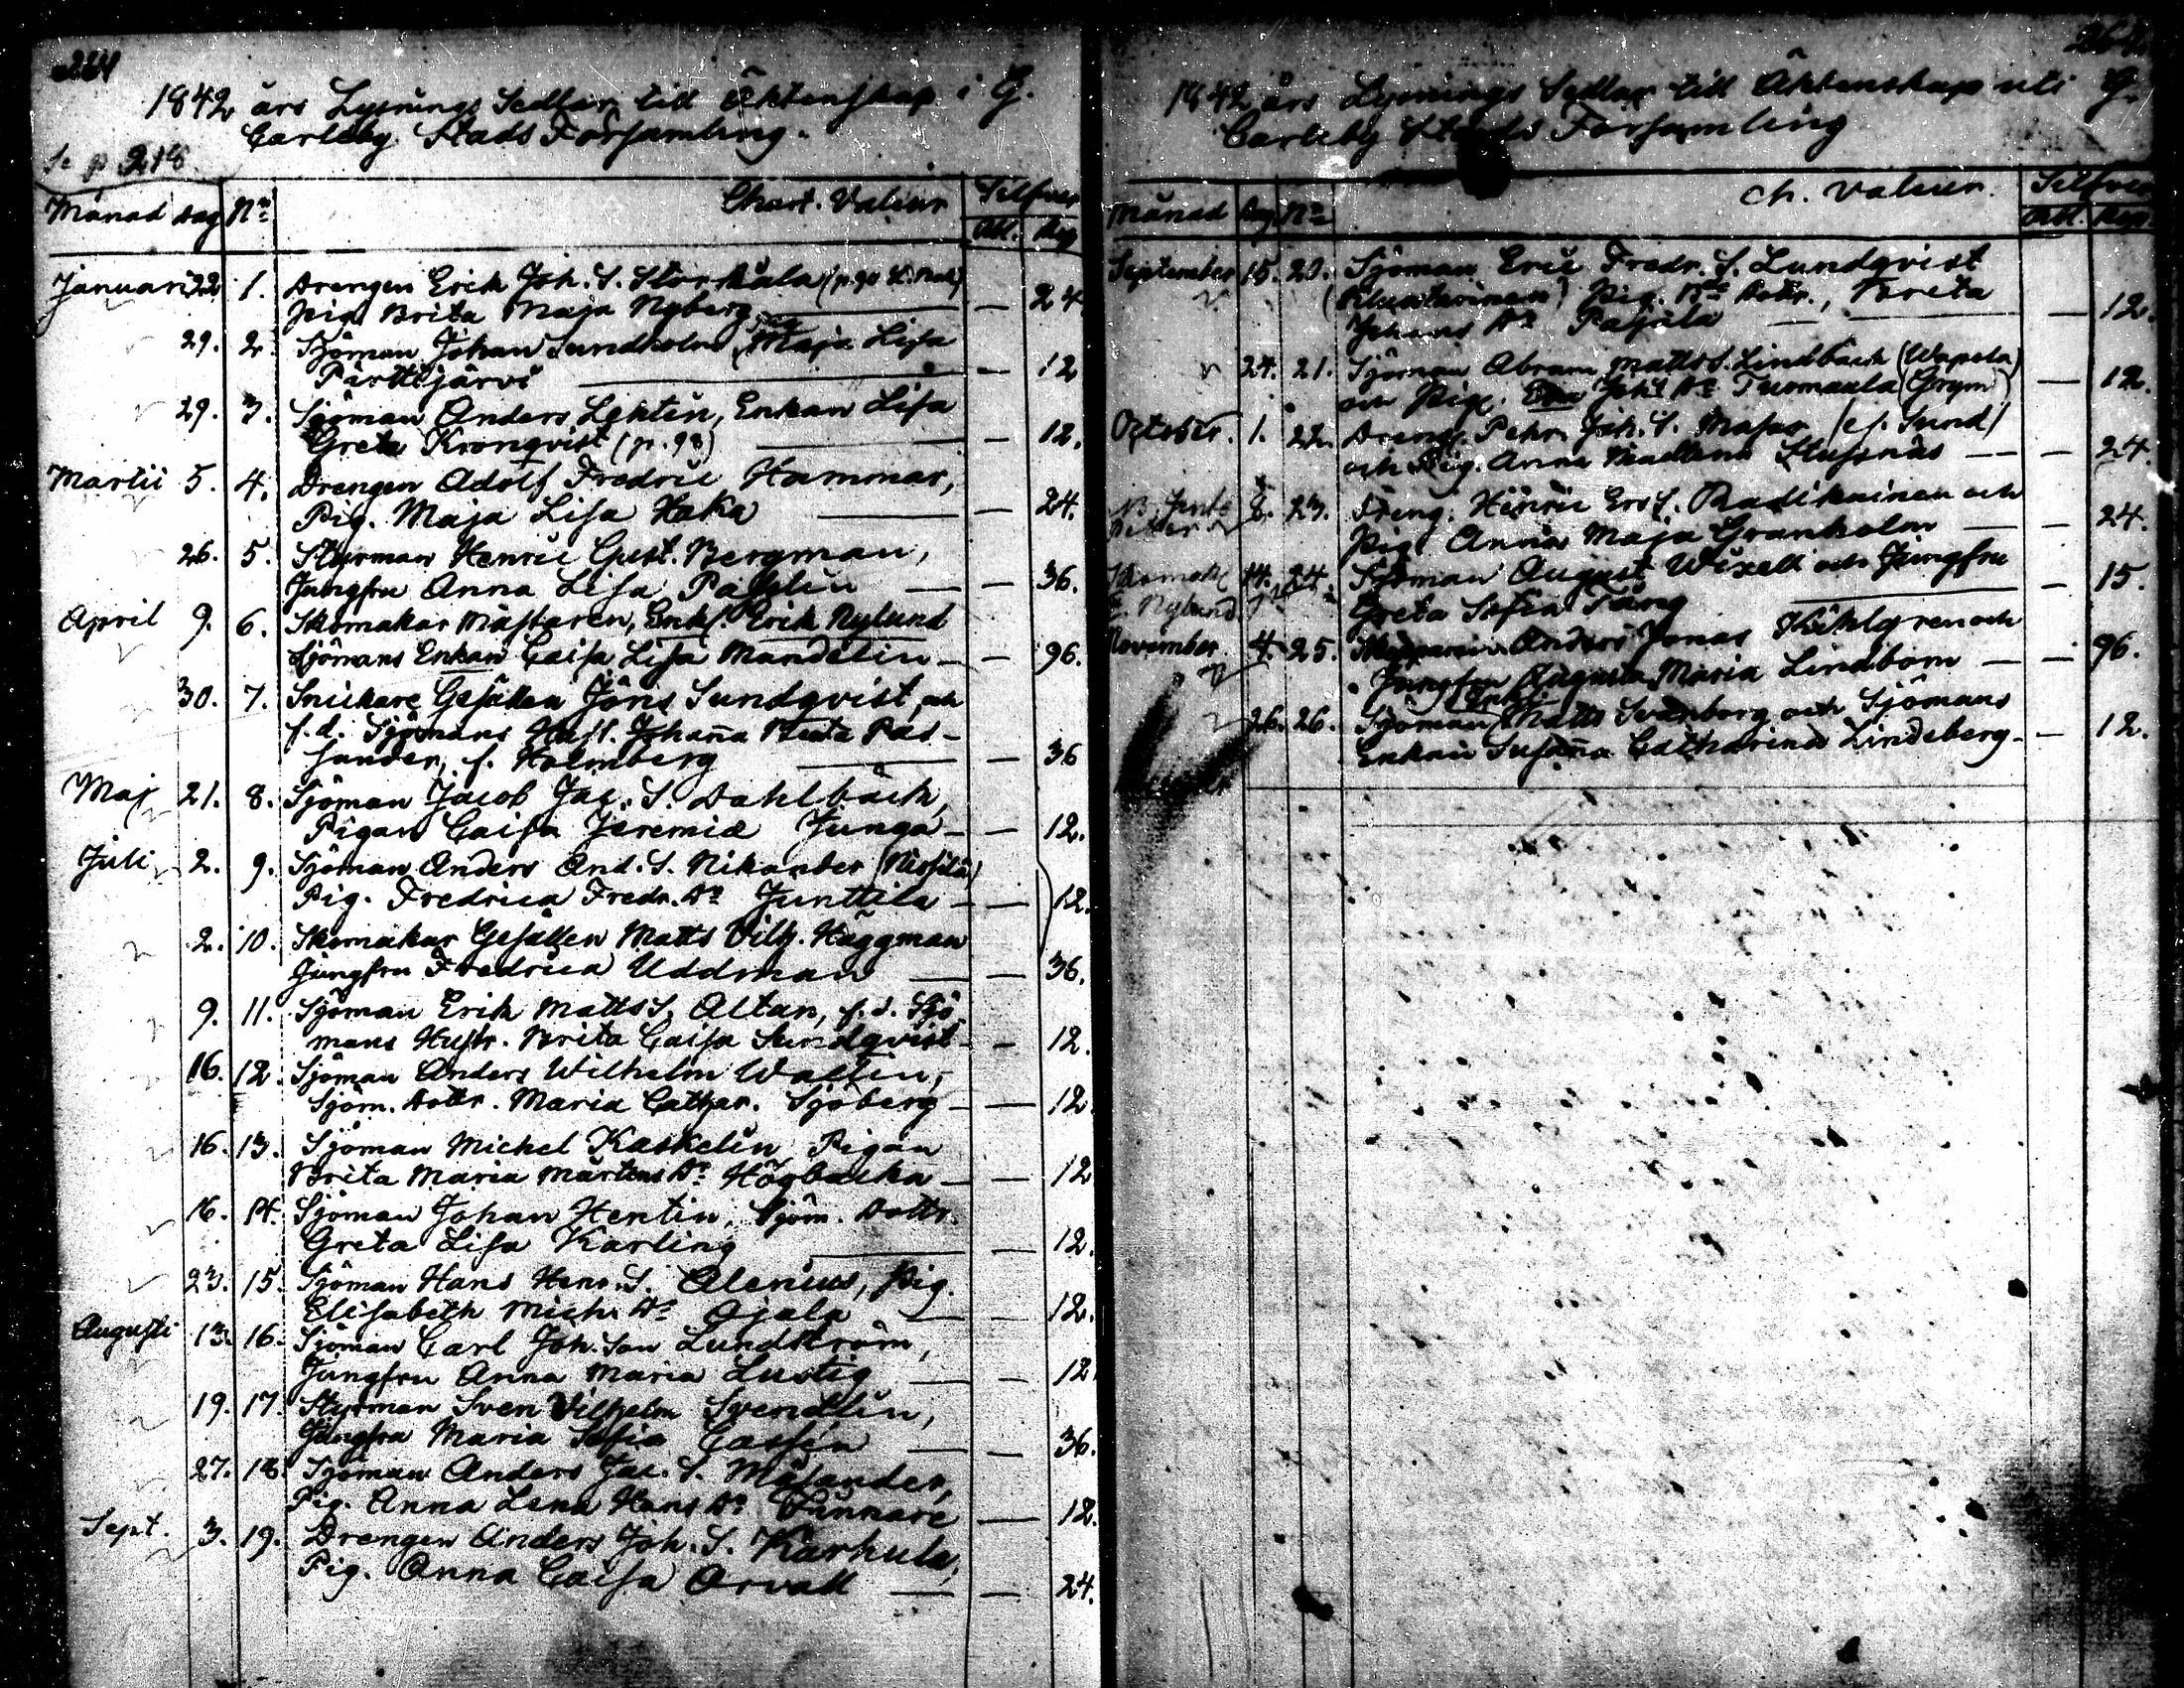 264
1842 års Lysnings Sedlar till Äktenskap i G.
Carleby Stads Församling.
Se p 218
Månad dag No Chart. Valeur Silfver
Rbl. Kop
Januari 22 1. Drengen Erik Joh. S. Storkåla
Pig. Brita Maja Nyberg — — 24.
29. 2. Sjöman Johan Sundholm, Maja Lisa
Pärttijärvi — — 12
29. 3. Sjöman Anders Lehtin, Enkan Lisa
Greta Kronqvist (p. 98) — — 12.
Martii 5. 4. Drengen Adolf Fredric Hammar,
Pig. Maja Lisa Haka — — 24.
26. 5. Styrman Henric Gust. Bergman,
Jungfru Anna Lisa — — 36.
April 9. 6. Skomakar Mästaren, Enkl. Erik Nylund
Sjömans Enkan Caisa Lisa Mandelin — — 96.
30. 7. Snickare Gesällen Jöns Sundqvist, och
f.d. Sjömans Hust. Johanna Greta Pas-
sander, f. Holmberg — — 36
Maj 21. 8. Sjöman Jacob Jac. S. Dahlbäck,
Pigan Caisa Jeremiæ Junga — — 12.
Juli 2. 9. Sjöman Anders And. S. Nikander (Nissilä)
Pig. Fredrica Fredr. Dr Junttila — — 12.
2. 10. Skomakar Gesällen Matts Vilh. Häggman
Jungfru Fredrica Uddman — — 36.
9. 11. Sjöman Erik Matts S. Altan, f.d. Sjö-
mans Hustr. Brita Caisa Sundqvist — — 12.
16. 12. Sjöman Anders Wilhelm Wallin,
Sjöm. Dottr. Maria Cathar. Sjöberg — — 12
16. 13. Sjöman Michel Kaskelin, Pigan
Brita Maria Mårtens Dr Högbacka — — 12
16. 14. Sjöman Johan Hentin, Sjöm. Dottr.
Greta Lisa Karling — — 12.
23. 15. Sjöman Hans Henr. S. Alenius, Pig.
Elisabeth Mich. Dr Ojala — — 12.
Augusti 13. 16. Sjöman Carl Joh. Son Lundström,
Jungfru Anna Maria Lustig — — 12.
19. 17. Styrman Sven Vilhelm Svendlin,
Jungfru Maria Sofia Cassén — — 36.
27. 18. Sjöman Anders Jac. S. Måsander,
Pig. Anna Lena Hans Dr Finnare — — 12.
Sept. 3. 19. Drengen Anders Joh. S. Karhula,
Pig. Anna Caisa Orvall — — 24.
1842 års Lysnings Sedlar till Äktenskap uti G.
Carleby Stads Församling
Månad Dag No Ch. Valeur. Silfver
Rbl. Kop.
September 15. 20. Sjöman Eric Fredr. S. Lundqvist
Pig. Dottr., Greta
Johans Dr Pajala — — 12.
24. 21. Sjöman Abram Matts S. Lindbäck (Wapela)
och Pig. Joh. Dr Tuomaala (Grym) — 12.
October. 1. 22. Dreng. Pehr Joh. S. Masar
och Pig. Anna Madlena Slussnäs — — 24.
8. 23. Dreng. Henric Ers S. Radikainen och
Pig. Anna Maja Granholm — — 24.
E. Nylund 14. 24. Sjöman August Wixell och Jungfru
Greta Sofia Täng — 15.
November. 4. 25. Anders Jonas Kihlgren och
Jungfru Augusta Maria Lindbom — — 96.
26. 26. Sjöman Enkl. Matts Svanborg och Sjömans
Enkan Susanna Catharina Lindeberg — — 12.